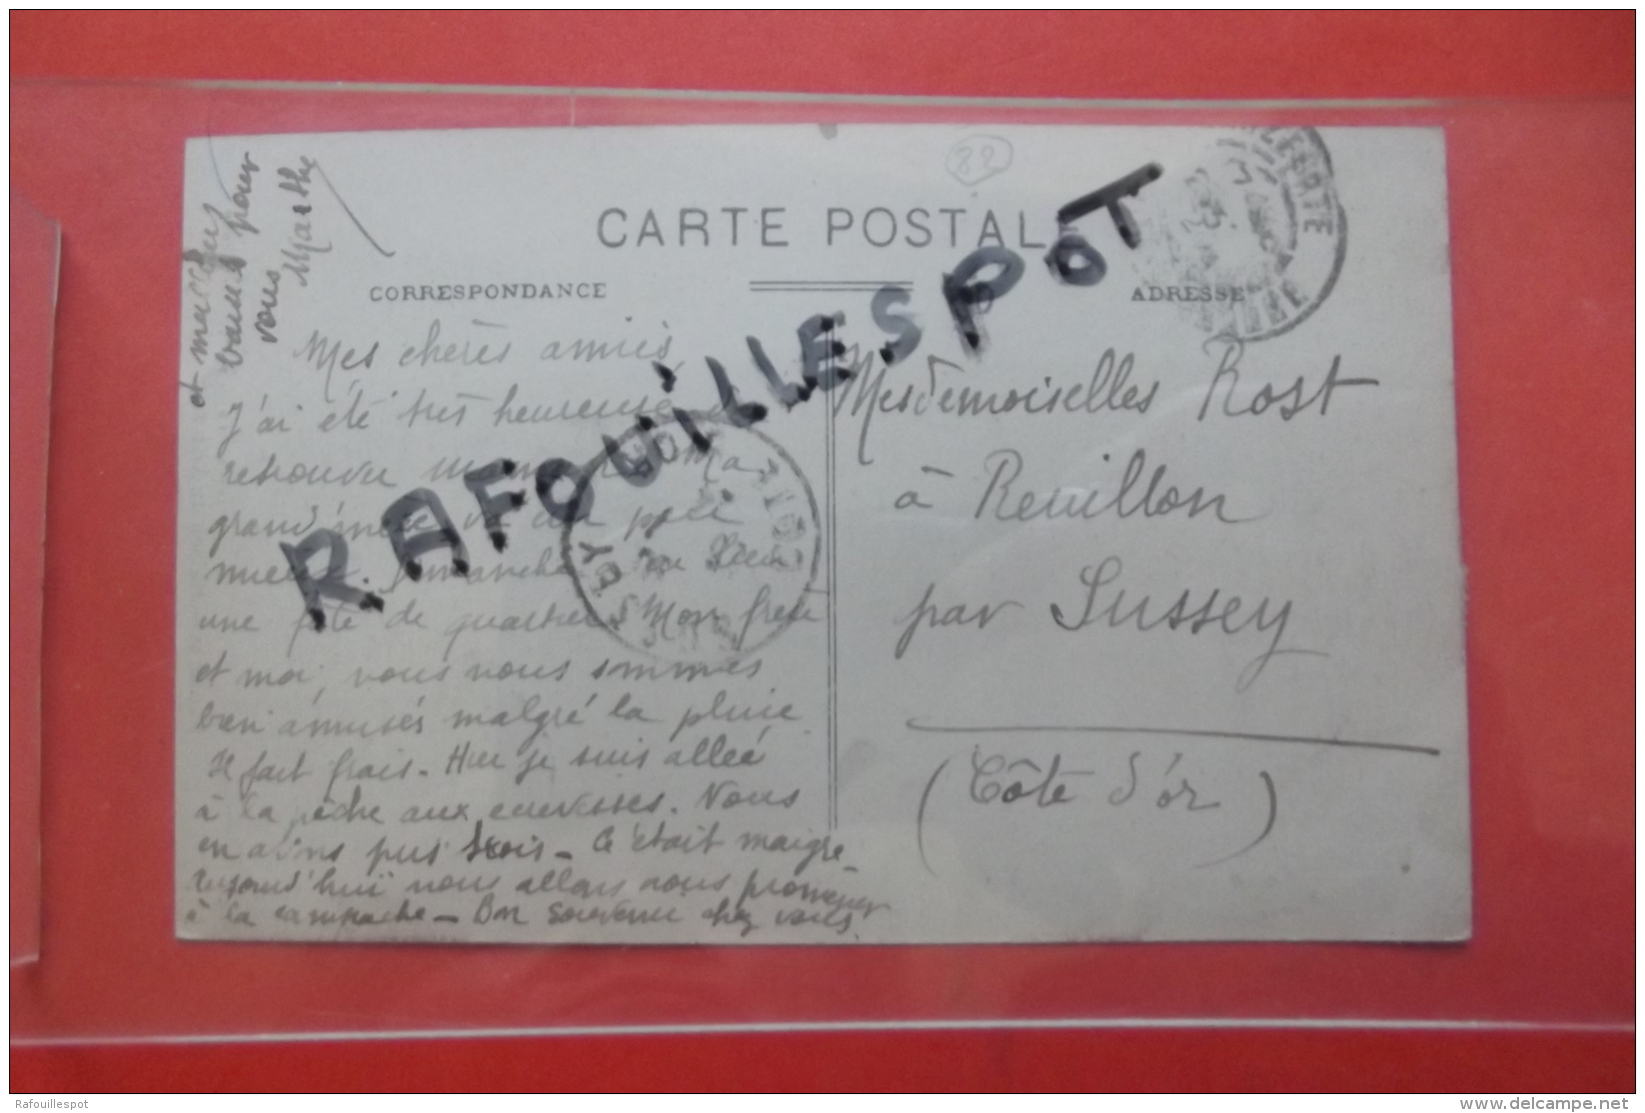 82
CARTE POSTALE
CORRESPONDANCE
ADRESSE
RAFOUILLESPOT
Mes chères amies,
J'ai été très heureuse de
retrouver maman. Ma
grand'mère va un peu
mieux. Dimanche
une fête de quartier. Mon frère
et moi, nous nous sommes
bien amusés malgré la pluie.
Il fait frais. Hier je suis allée
à la pêche aux écrevisses. Nous
en avons pris trois - C'était maigre -
Aujourd'hui nous allons nous promener
à la campagne - Bon souvenir chez vous
et meilleurs
baisers pour
vous
Marthe
Mesdemoiselles Rost
à Reuillon
par Sussey
(Côte d'or)
Rafouillespot
delcampe.net